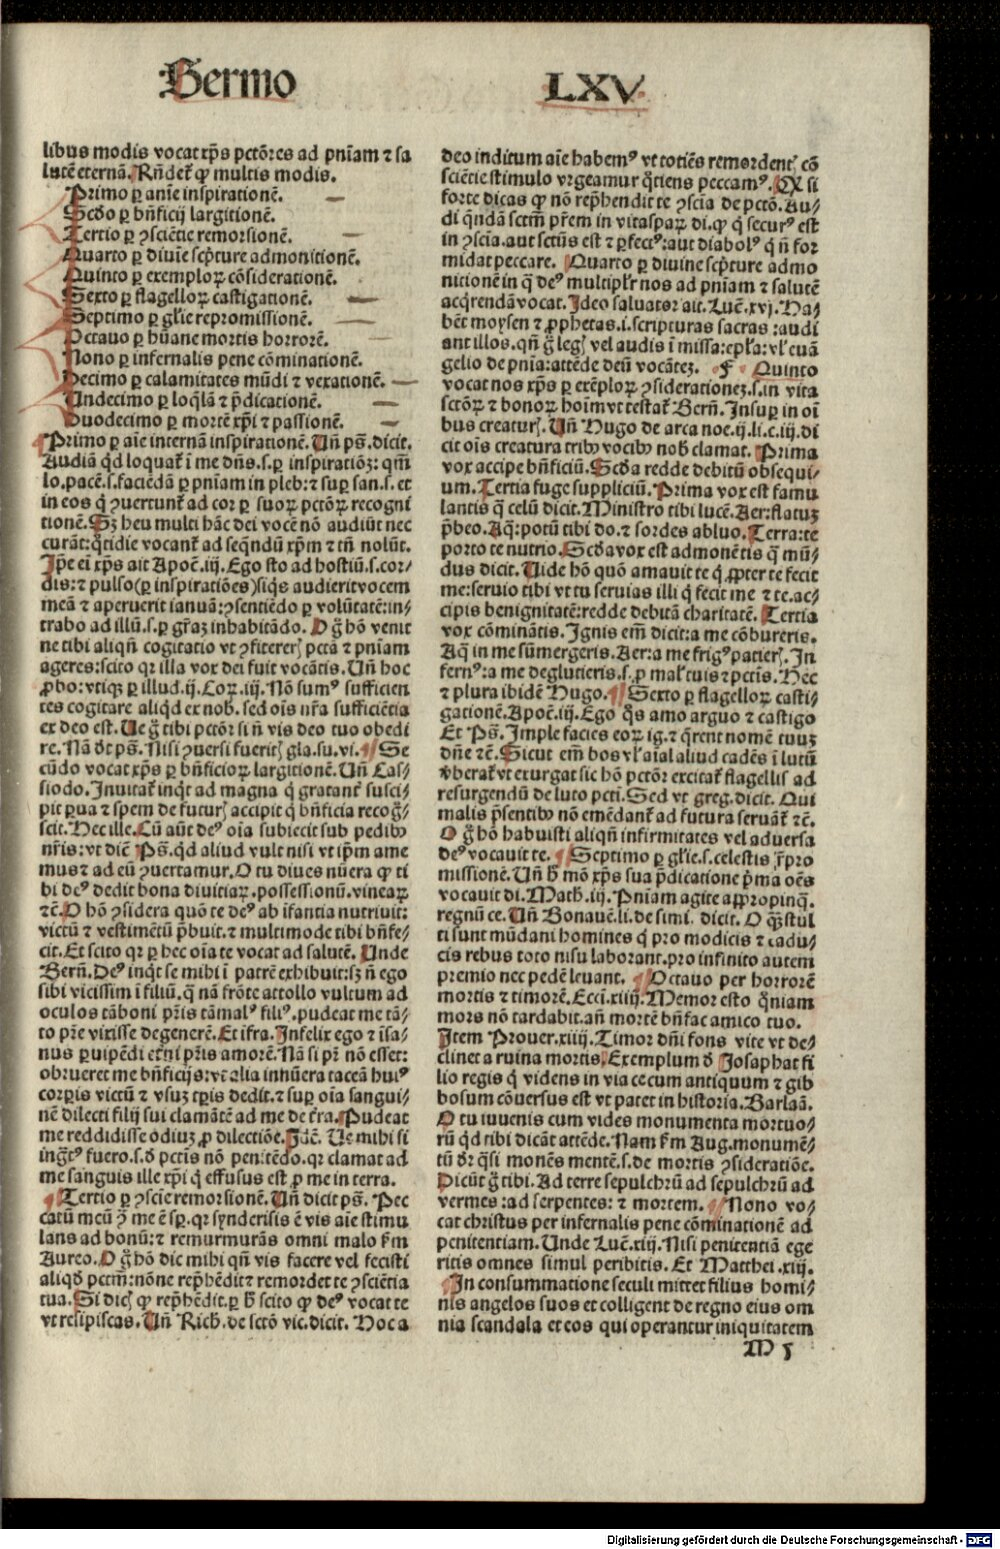 Sermo LXV
libus modis vocat xp̄s pctōres ad pniam ⁊ sa
lutē eternā. Rn̄det̄ ꝙ multis modis.
Primo ꝑ anīe inspirationē.
Scd̄o ꝑ bn̄ficij largitionē.
Tertio ꝑ ꝯsciētie remorsionē.
Quarto ꝑ diuīe scp̄ture admonitionē.
Quinto ꝑ exemploꝝ cōsiderationē.
Sexto ꝑ flagelloꝝ castigationē.
Septimo ꝑ gl̄ie repromissionē.
Octauo ꝑ hūane mortis horrorē.
Nono ꝑ infernalis pene cōminationē.
Decimo ꝑ calamitates mūdi ⁊ vexationē.
Undecimo ꝑ loq̄lā ⁊ p̄dicationē.
Duodecimo ꝑ mortē xp̄i ⁊ passionē.
Primo ꝑ aīe internā inspirationē. Un̄ ps̄. dicit.
Audiā qd̄ loquat̄ ī me dn̄s.s.ꝑ inspiratiōꝫ: qm̄
lo.pacē.s.faciēdā ꝑ pniam in pleb:⁊ suꝑ san.s. et
in eos q̄ ꝯuertunt̄ ad cor ꝑ suoꝝ pctōꝝ recogni
tionē. Sꝫ heu multi hāc dei vocē nō audiūt nec
curāt: q̄tidie vocant̄ ad seq̄ndū xp̄m ⁊ tn̄ nolūt.
Ip̄e ei xp̄s ait Apoc̄.iij. Ego sto ad hostiū.s.cor⸗
dis:⁊ pulso(ꝑ inspiratiōes)siq̄s audierit vocem
meā ⁊ aperuerit ianuā:ꝯsentiēdo ꝑ volūtatē:in⸗
trabo ad illū.s.ꝑ gr̄aꝫ inhabitādo. O ḡ hō venit
ne tibi aliqn̄ cogitatio vt ꝯfiterer̄ pctā ⁊ pniam
ageres:scito qꝛ illa vox dei fuit vocātis. Un̄ hoc
ꝓbo:vtiqꝫ ꝑ illud.ij. Coꝝ.iij. Nō sumꝰ sufficien
tes cogitare aliqd̄ ex nob̄. sed oīs nr̄a sufficiētia
ex deo est. Ue ḡ tibi pctōr si n̄ vis deo tuo obedi
re. Nā dt̄ ps̄. Nisi ꝯuersi fuerit̄ gla.su.vi. Se
cūdo vocat xp̄s ꝑ bn̄ficioꝝ largitionē. Un̄ Cas⸗
siodo. Inuitat̄ inqt̄ ad magna q̄ gratant̄ susci⸗
pit ꝑua ⁊ spem de futur̄ accipit q̄ bn̄ficia recoḡ⸗
scit. Hec ille. Cū aūt deꝰ oīa subiecit sub pedibꝰ
nr̄is:vt dic̄ Ps̄. qd̄ aliud vult nisi vt ip̄m ame
mus ⁊ ad eū ꝯuertamur. O tu diues nūera ꝙ ti
bi deꝰ dedit bona diuitiaꝝ.possessionū.vineaꝝ
⁊c̄. O hō ꝯsidera quō te deꝰ ab īfantia nutriuit:
victū ⁊ vestimētū p̄buit.⁊ multimode tibi bn̄fe⸗
cit. Et scito qꝛ ꝑ hec oīa te vocat ad salutē. Unde
Bern̄. Deꝰ inqt̄ se mihi ī patrē exhibuit:sꝫ n̄ ego
sibi vicissim ī filiū.q̄ nā frōte attollo vultum ad
oculos tāboni pr̄is tāmalꝰ filiꝰ.pudeat me tā⸗
to pr̄e vixisse degenerē. Et īfra. Infelix ego ⁊ īsa⸗
nus ꝑuipēdi etn̄i pr̄is amorē. Nā si pr̄ nō esset:
obrueret me bn̄ficijs:vt alia innūera taceā huiꝰ
corꝑis victū ⁊ vsuꝫ tꝑis dedit.⁊ suꝑ oīa sangui⸗
nē dilecti filij sui clamātē ad me de tr̄a. Pudeat
me reddidisse odiuꝫ ꝓ dilectiōe. Idē. Ue mihi si
ingt̄ꝰ fuero.s.d̄ pctīs nō penitēdo.qꝛ clamat ad
me sanguis ille xp̄i q̄ effusus est ꝓ me in terra.
Tertio ꝑ ꝯsciē remorsionē. Un̄ dicit ps̄. Pec
catū meū ꝯ me ē sꝑ.qꝛ synderisis ē vis aīe stimu
lans ad bonū:⁊ remurmurās omni malo km̄
Aureo. O ḡ hō dic mihi qn̄ vis facere vel fecisti
aliqd̄ pctm̄:nōne rep̄hēdit ⁊ remordet te ꝯsciētia
tua. Si dic̄ ꝙ rep̄hēdit.ꝑ h̄ scito ꝙ deꝰ vocat te
vt resipiscas. Un̄ Rich. de sctō vic.dicit. Hoc a
deo inditum aīe habemꝰ vt totiēs remordent̄ cō
sciētie stimulo vrgeamur q̄tiens peccamꝰ. Qꝫ si
forte dicas ꝙ nō rep̄hendit te ꝯscīa de pctō. Au⸗
di q̄ndā sctm̄ pr̄em in vitaspaꝝ di.ꝙ q̄ securꝰ est
in ꝯscīa.aut sctūs est ⁊ ꝑfectꝰ:aut diabolꝰ q̄ n̄ for
midat peccare. Quarto ꝑ divine scp̄ture admo
nitionē in q̄ deꝰ multipl̄r nos ad pniam ⁊ salutē
acq̄rendā vocat. Ideo saluator ait. Luc̄.xvj. Ha⸗
bēt moysen ⁊ ꝓphetas.i.scripturas sacras:audi
ant illos.qn̄ ḡ leḡ vel audis ī missa:epl̄a:vl̓ euā
gelio de pnīa:attēde deū vocātez. F Quinto
vocat nos xp̄s ꝑ exēploꝝ ꝯsiderationeꝫ.s.in vita
sctōꝝ ⁊ bonoꝝ hoīm vt testat̄ Bern̄. Insuꝑ in oī
bus creatur̄. Un̄ Hugo de arca noe.ij.li.c.iij.di
cit oīs creatura tribꝰ vocibꝰ nob̄ clamat. Prima
vox accipe bn̄ficiū. Scd̄a redde debitū obsequi⸗
um. Tertia fuge suppliciū. Prima vox est famu
lantis q̄ celū dicit. Ministro tibi lucē. Aer:flatuꝫ
p̄beo. Aq̄:potū tibi do.⁊ sordes abluo. Terra:te
porto te nutrio. Scd̄a vox est admonētis q̄ mū⸗
dus dicit. Uide hō quō amauit te q̄ ꝓpter te fecit
me:seruio tibi vt tu seruias illi q̄ fecit me ⁊ te.ac⸗
cipis benignitatē:redde debitā charitatē. Tertia
vox cōminātis. Ignis em̄ dicit:a me cōbureris.
Aq̄ in me sūmergeris. Aer:a me frigꝰ patier̄. In
fernꝰ:a me deglutieris.s.ꝓ mal̄ tuis ⁊ pctīs. Hec
⁊ plura ibidē Hugo. Sexto ꝑ flagelloꝝ casti⸗
gationē. Apoc̄.iij. Ego q̄s amo arguo ⁊ castigo
Et Ps̄. Imple facies eoꝝ ig.⁊ q̄rent nomē tuuꝫ
dn̄e ⁊c̄. Sicut em̄ bos vl̓ aīal aliud cadēs ī lutū
v̄berat̄ vt exurgat sic hō pctōr excitat̄ flagellis ad
resurgendū de luto pcti. Sed vt greg.dicit. Qui
malis p̄sentibꝰ nō emēdant̄ ad futura seruāt̄ ⁊c̄.
O ḡ hō habuisti aliqn̄ infirmitates vel aduersa
deꝰ vocauit te. Septimo ꝑ gl̄ie.s.celestis r̄pro
missionē. Un̄ h̄ mō xp̄s sua p̄dicatione p̄ma oēs
vocauit di. Math.iij. Pniam agite appropinq̄.
regnū ce. Un̄ Bonauē.li.de simi. dicit. O q̄ꝫ stul
ti sunt mūdani homines q̄ pro modicis ⁊ cadu⸗
cis rebus toto nisu laborant.pro infinito autem
premio nec pedē leuant. Octauo per horrorē
mortis ⁊ timorē. Ecci.xiiij. Memor esto q̄niam
mors nō tardabit.an̄ mortē bn̄fac amico tuo.
Item Prouer.xiiij. Timor dn̄i fons vite vt de⸗
clinet a ruina mortis. Exemplum d̄ Josaphat fi
lio regis q̄ videns in via cecum antiquum ⁊ gib
bosum cōuersus est vt patet in historia. Barlaā.
O tu iuuenis cum vides monumenta mortuo⸗
rū qd̄ tibi dicāt attēde. Nam km̄ Aug.monumē⸗
tū dr̄ q̄si monēs mentē.s.de mortis ꝯsideratiōe.
Dicūt ḡ tibi. Ad terre sepulchrū ad sepulchrū ad
vermes:ad serpentes:⁊ mortem. Nono vo⸗
cat christus per infernalis pene cōminationē ad
penitentiam. Unde Luc̄.xiij. Nisi penitentiā ege
ritis omnes simul peribitis. Et Matthei.xiij.
In consummatione seculi mittet filius homi⸗
nis angelos suos et colligent de regno eius om
nia scandala et eos qui operantur iniquitatem
M 5
Digitalisierung gefördert durch die Deutsche Forschungsgemeinschaft - DFG